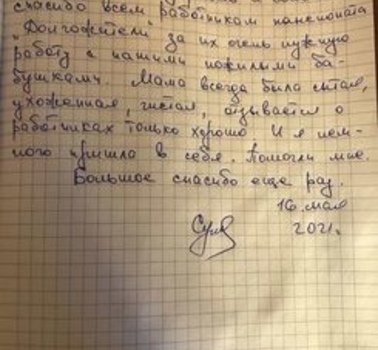 спасибо всем работникам пансионата
"Долгожители" за их очень нужную
работу с нашими пожилыми ба-
бушками. Мама всегда была сытая,
ухоженная, чистая, отзывается о
работниках только хорошо. И я нем-
ного пришла в себя. Помогли мне.
Большое спасибо еще раз.
16 мая
2021г.